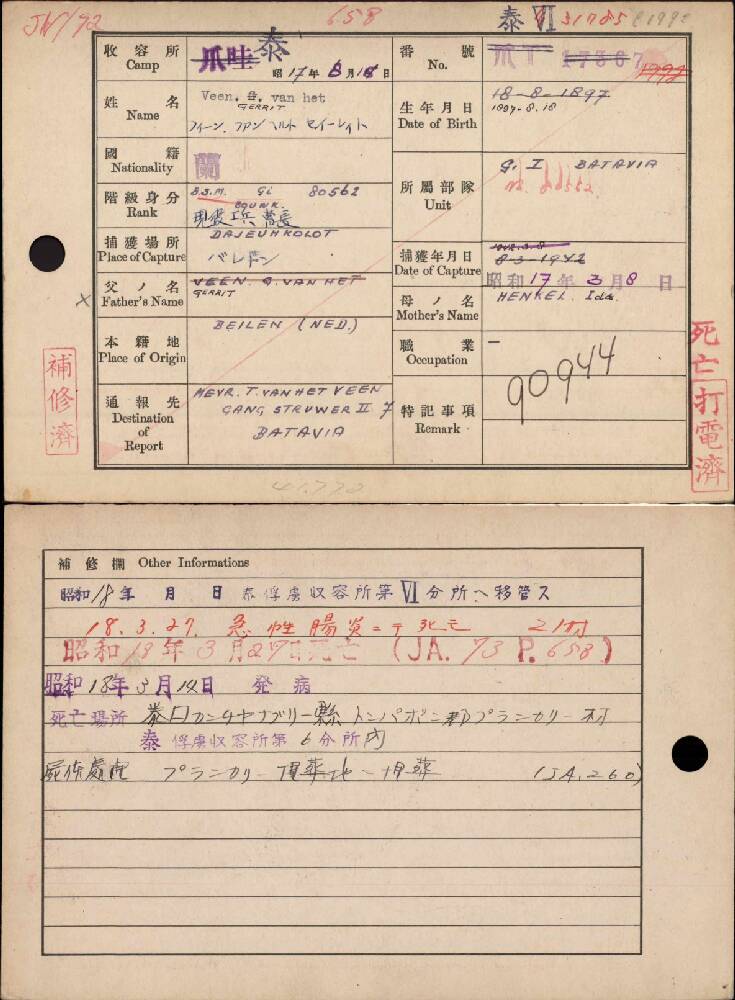 JW/92
658
泰 VI
31785
收容所 Camp
爪哇 泰
昭17年8月15日
番號 No.
爪 I 17367
1992
姓名 Name
Veen. G. van het
GERRIT
フィーン. ファン ヘルト
生年月日 Date of Birth
18-8-1897
1897-8.18
國籍 Nationality
蘭
所屬部隊 Unit
G. I BATAVIA
階級身分 Rank
B.S.M. GI 80562
捕獲場所 Place of Capture
DAJEUHKOLOT
捕獲年月日 Date of Capture
8-3-1942
昭和17年3月8日
父ノ名 Father's Name
VEEN. G. VAN HET
GERRIT
母ノ名 Mother's Name
HENKEL. Ida.
本籍地 Place of Origin
BEILEN (NED.)
職業 Occupation
-
通報先 Destination of Report
MEVR. T. VAN HET VEEN
GANG STRUWER II 7
BATAVIA
特記事項 Remark
90944
補修濟
死亡
打電濟
補修欄 Other Informations
昭和18年 月 日 泰俘虜収容所第VI分所ヘ移管ス
18.3.27. 急性腸炎ニテ死亡
昭和18年3月27日死亡 (JA. 73 P. 658)
昭和18年3月14日 発病
死亡場所 泰国カンチヤナブリー縣 トンパポン郡プランカリー村
泰俘虜収容所第6分所内
屍体處理 プランカリー 埋葬地ニ埋葬 (JA.260)